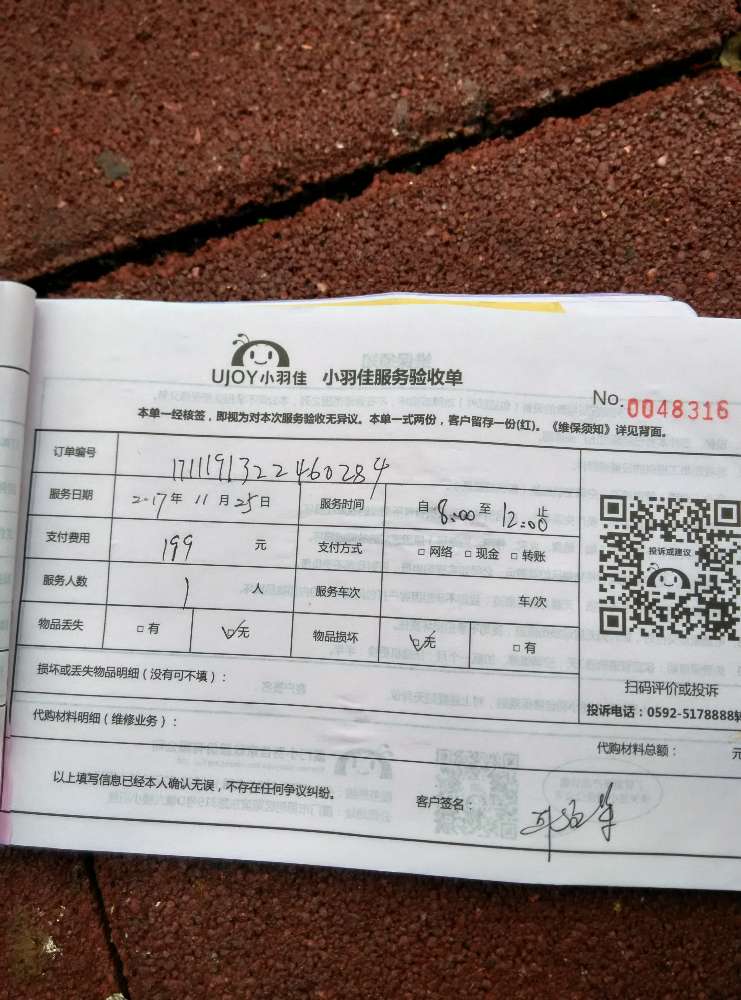 UJOY小羽佳 小羽佳服务验收单
No. 0048316
本单一经核签，即视为对本次服务验收无异议。本单一式两份，客户留存一份(红)。《维保须知》详见背面。
订单编号 1711191322460284
服务日期 2017年 11月 25日 服务时间 自 8:00 至 12:00 止
支付费用 199 元 支付方式 □ 网络 □ 现金 □ 转账
服务人数 1 人 服务车次 车/次
物品丢失 □ 有 ☑无 物品损坏 ☑无 □ 有
投诉或建议
损坏或丢失物品明细（没有可不填）：
扫码评价或投诉
投诉电话：0592-5178888转
代购材料明细（维修业务）： 代购材料总额： 元
以上填写信息已经本人确认无误，不存在任何争议纠纷。 客户签名：